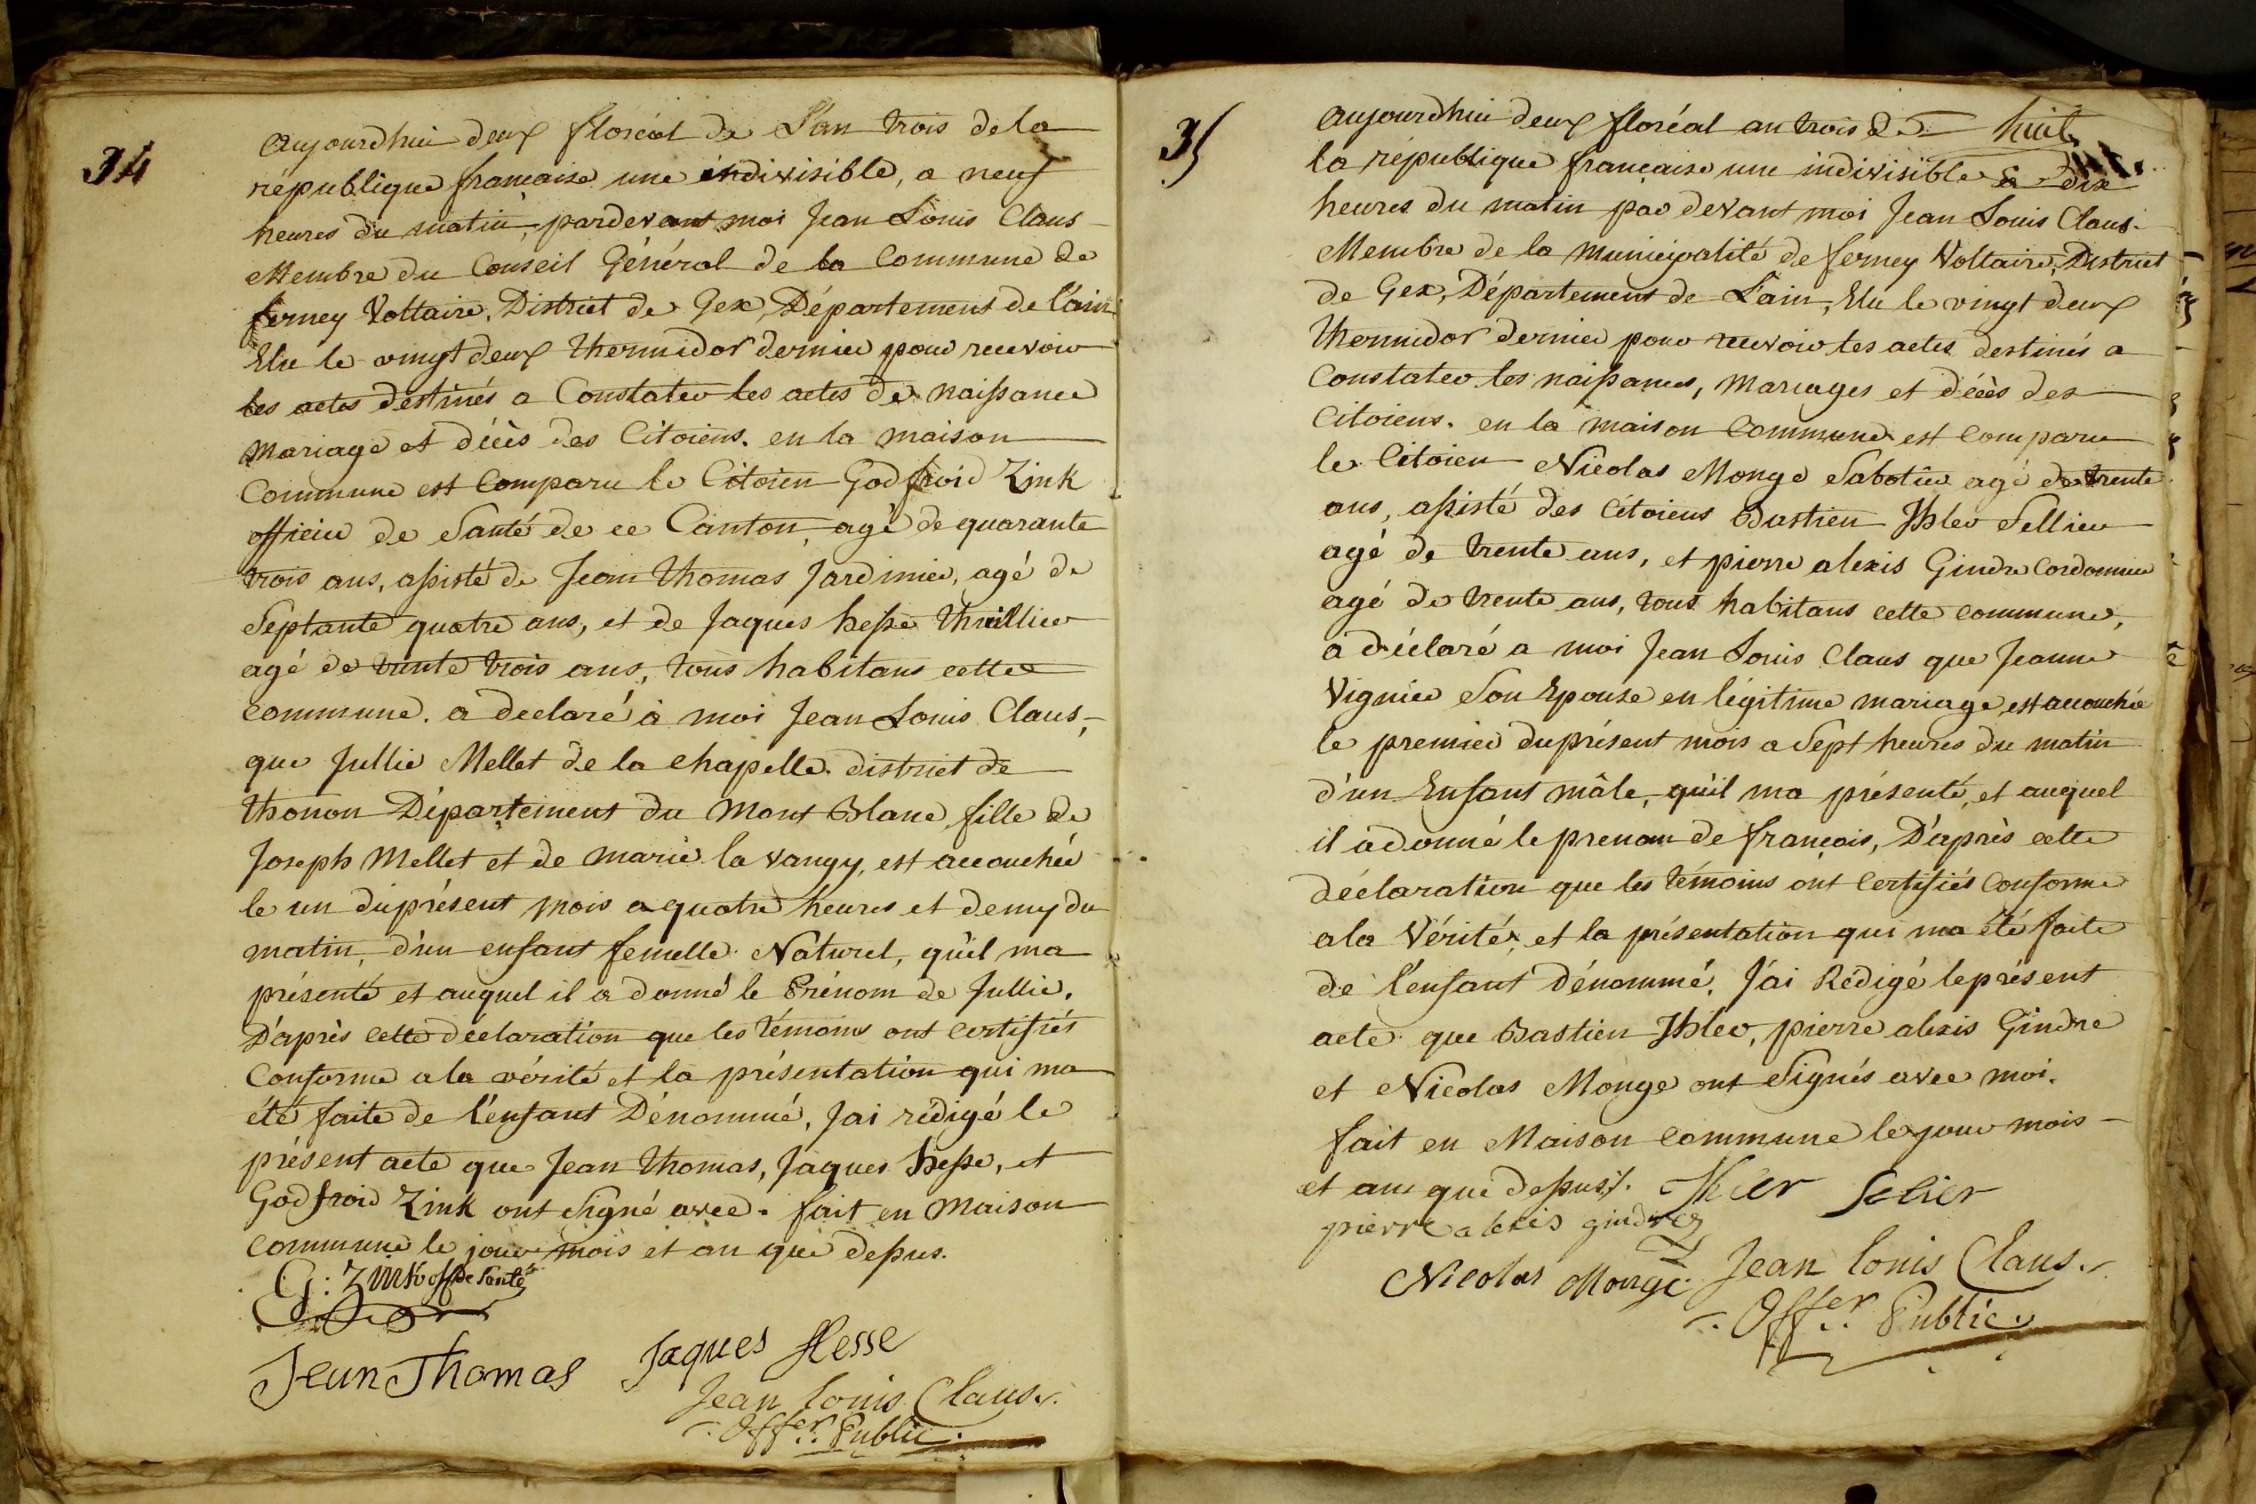 34
Aujourdhui deux floréal de L'an trois de la
république francaise une indivisible, a neuf
heures du matin, pardevant moi Jean Louis Claus
Membre du Conseil Général de la Commune de
ferney Voltaire, District de Gex, Département de l'ain
Elu le vingt deux thermidor dernier pour recevoir
les actes destinés a Constater les actes de naissance
Mariage et décès des Citoiens. en la maison
Commune est Comparu le Citoien Godfroid Zink
officier de Santé de ce Canton, agé de quarante
trois ans, assisté de Jean Thomas Jardinier, agé de
Septante quatre ans, et de Jaques hesse thuillier
agé de trente trois ans, tous habitans cette
commune. a declaré à moi Jean Louis Claus,
que Jullie Mellet de la chapelle district de
thonon Département du Mont Blanc, fille de
Joseph Mellet et de marie la vangy, est accouchée
le un du présent mois a quatre heures et demy du
matin, d'un enfant femelle Naturel, qu'il ma
présenté et auquel il a donné le Prénom de Jullie.
D'après cette déclaration que les témoins ont certifiés
Conforme a la vérité et la présentation qui ma
été faite de l'enfant Dénommé, Jai rédigé le
présent acte que Jean Thomas, Jaques hesse, et
Godfroid Zink ont signé avec. fait en Maison
Commune le jour mois et an que dessus.
G: Zink off de Santé
Jean Thomas Jaques Hesse
Jean louis Claus.
Offer. Public.
35
Aujourdhui deux floréal an trois de huit
la république française une indivisible a dix
heures du matin par devant moi Jean Louis Claus.
Membre de la municipalité de ferney Voltaire, District
de Gex, Département de L'ain, Elu le vingt deux
thermidor dernier pour recevoir les actes destinés a
Constater les naissances, mariages et décès des
Citoiens. en la maison Commune est comparu
le Citoien Nicolas Monge Sabotier agé de trente
ans, assisté des Citoiens Bastien Ihler Sellier
agé de trente ans, et pierre alexis Gindre Cordonnier
agé de trente ans, tous habitans cette commune,
a déclaré a moi Jean Louis Claus que Jeanne
Vignier Son Epouse en légitime mariage, est accouchée
le premier du présent mois a Sept heures du matin
d'un Enfant mâle, qu'il ma présenté, et auquel
il a donné le prenom de françois, D'après cette
déclaration que les témoins ont Certifiés Conforme
a la Vérité, et la présentation qui ma été faite
de l'enfant dénommé, J'ai Rédigé le présent
acte que Bastien Ihler, pierre alexis Gindre
et Nicolas Monge ont Signés avec moi.
fait en Maison commune le jour mois
et an que dessus. Ihler Selier
pierre alexis gindre
Nicolas Monge Jean louis Claus.
Offer. Public.